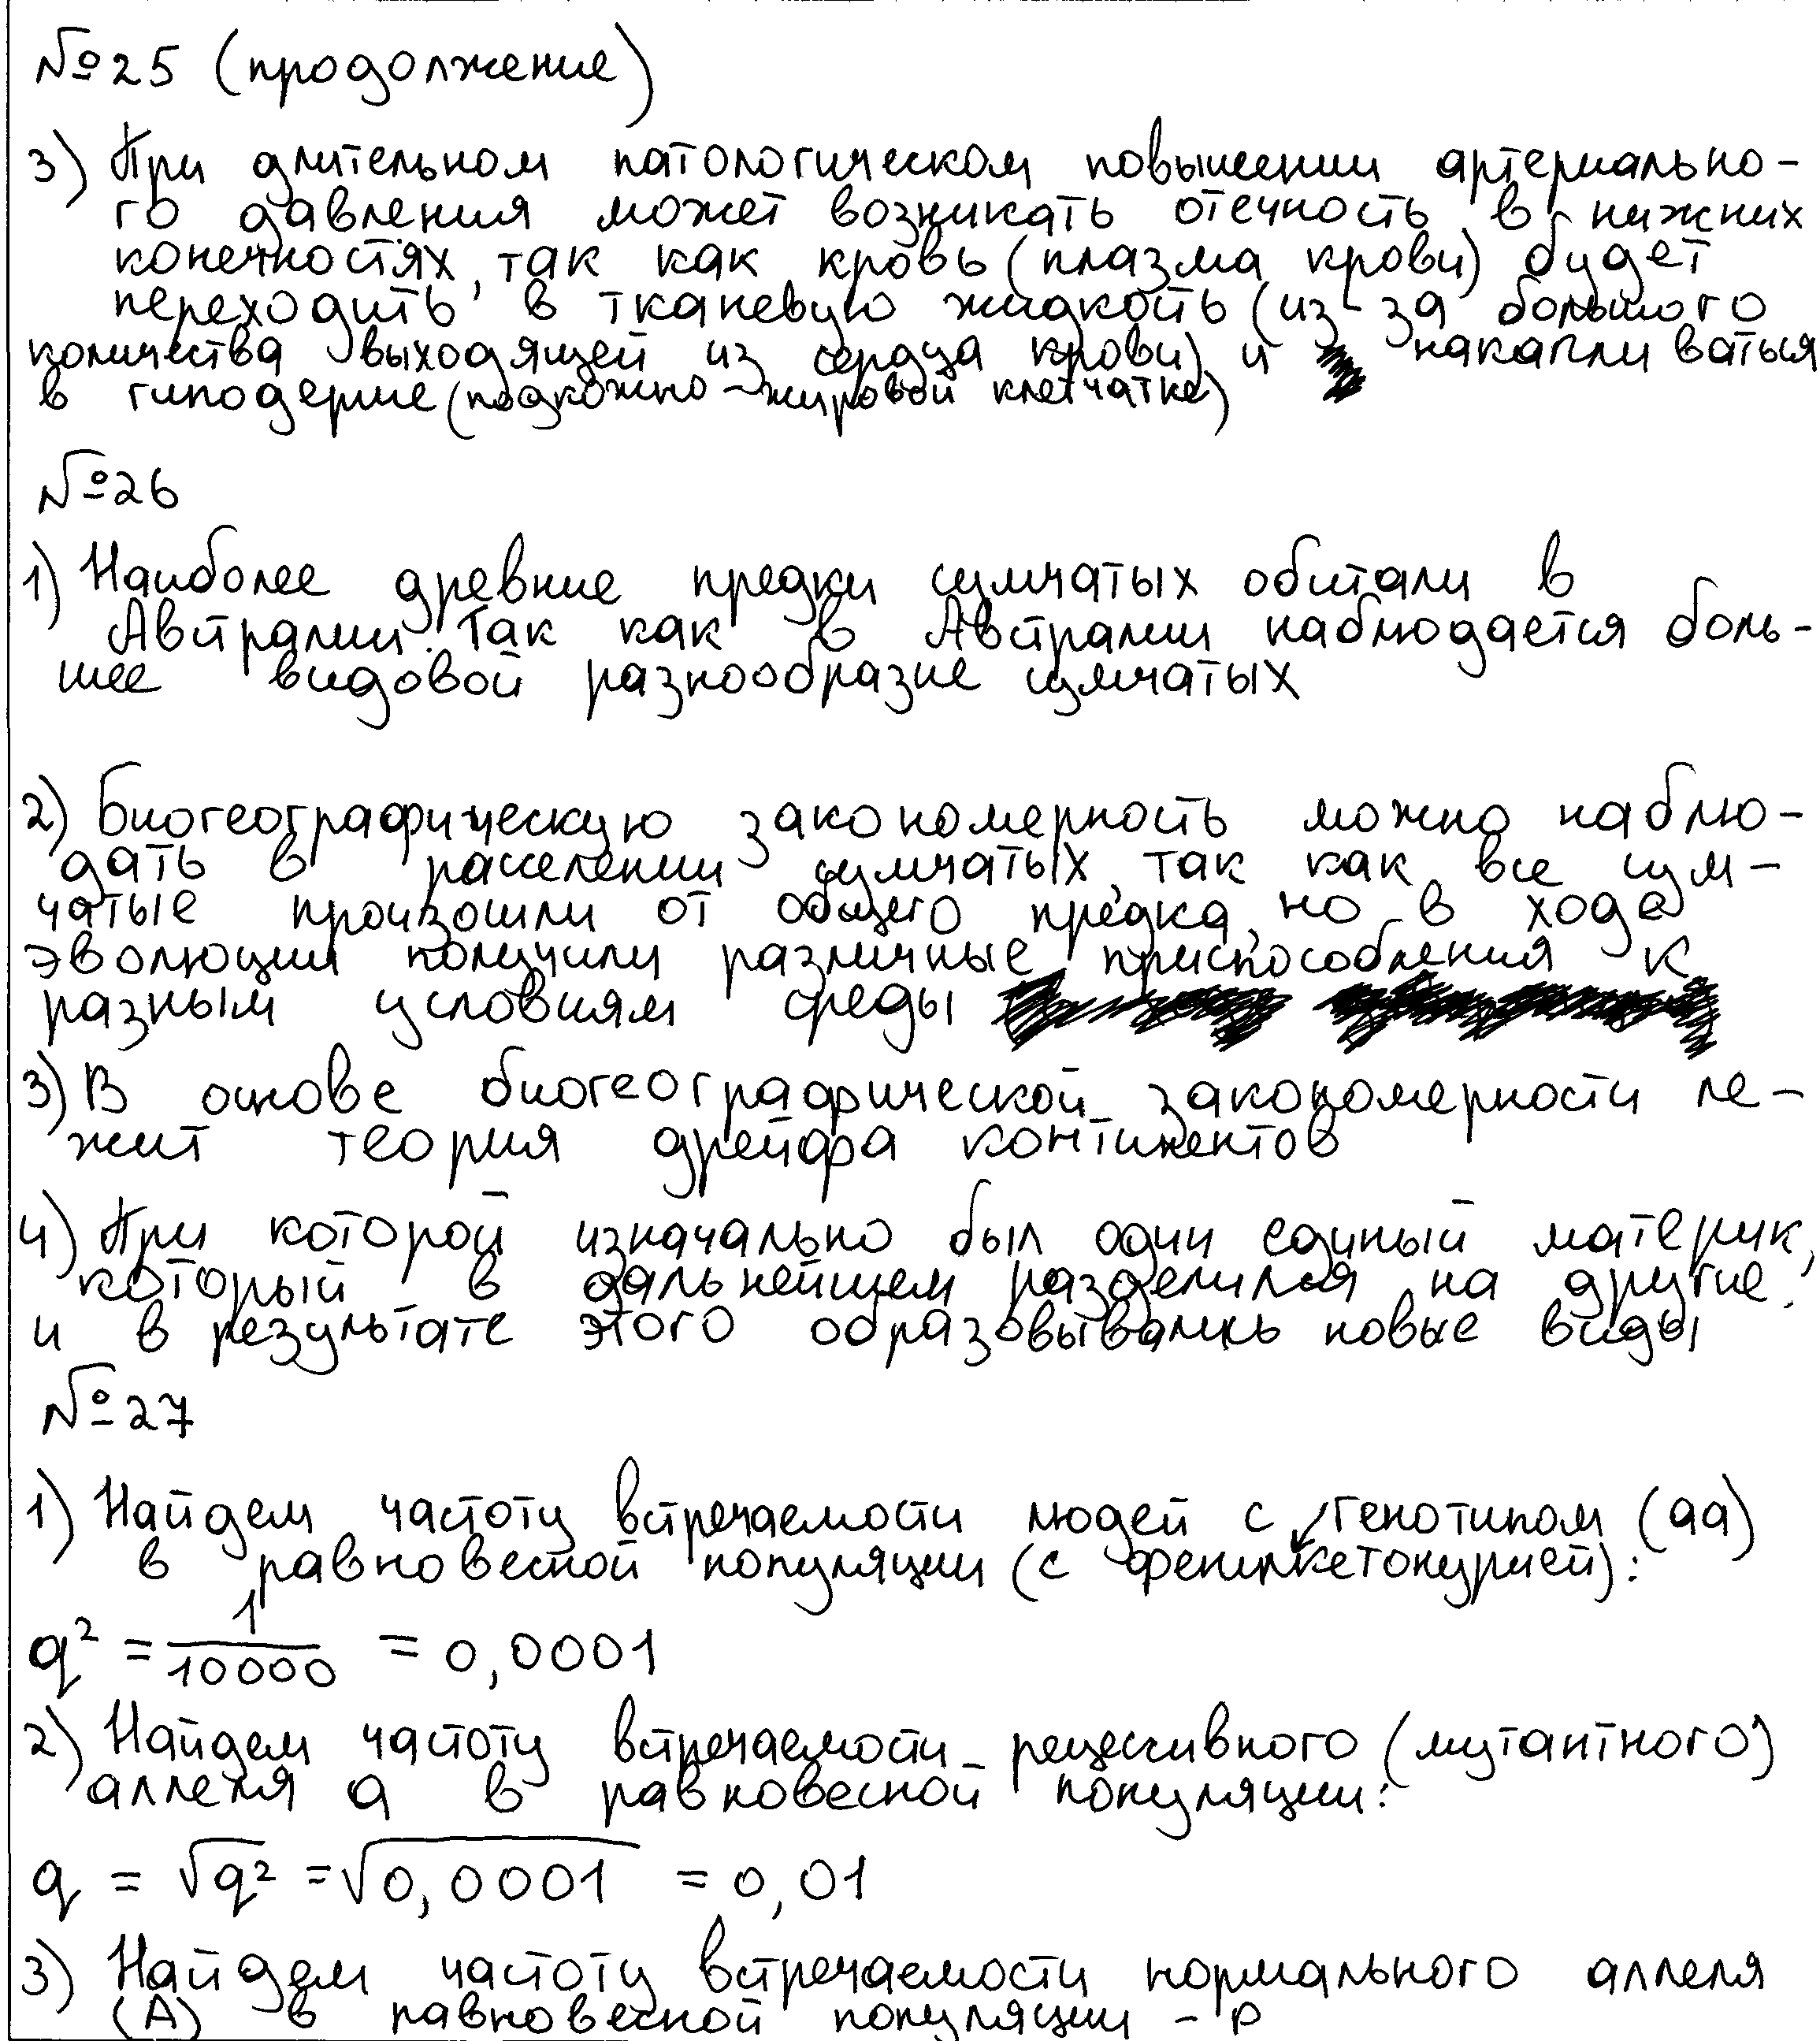 №25 (продолжение)
3) При длительном патологическом повышении артериально-
го давления может возникать отечность в нижних
конечностях, так как кровь (плазма крови) будет
переходить в тканевую жидкость (из-за большого
количества выходящей из сердца крови) и накапливаться
в гиподерме (подкожно-жировой клетчатке)
№26
1) Наиболее древние предки сумчатых обитали в
Австралии. Так как в Австралии наблюдается боль-
шее видовой разнообразие сумчатых
2) Биогеографическую закономерность можно наблю-
дать в расселении сумчатых, так как все сум-
чатые произошли от общего предка, но в ходе
эволюции получили различные приспособления к
разным условиям среды
3) В основе биогеографической закономерности ле-
жит теория дрейфа континентов
4) При которой изначально был один единый материк,
который в дальнейшем разделился на другие.
и в результате этого образовывались новые виды
№27
1) Найдем частоту встречаемости людей с генотипом (aa)
в равновесной популяции (с фенилкетонурией):
q² = 1/10000 = 0,0001
2) Найдем частоту встречаемости рецессивного (мутантного)
аллеля a в равновесной популяции:
q = √q² = √0,0001 = 0,01
3) Найдем частоту встречаемости нормального аллеля
(A) в равновесной популяции - p